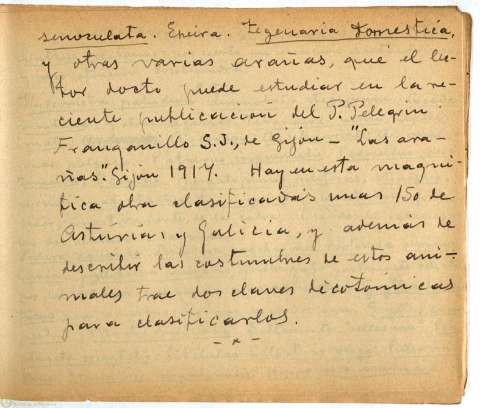 senoculata. Epeira. Tegenaria Domestica,
y otras varias arañas, que el lec-
tor docto puede estudiar en la re-
ciente publicación del P. Pelegrin
Franganillo S.J., de Gijón - "Las ara-
ñas". Gijón 1917. Hay en esta magní-
fica obra clasificadas unas 150 de
Asturias y Galicia, y además de
describir las costumbres de estos ani-
males trae dos claves dicotómicas
para clasificarlos.
- x -